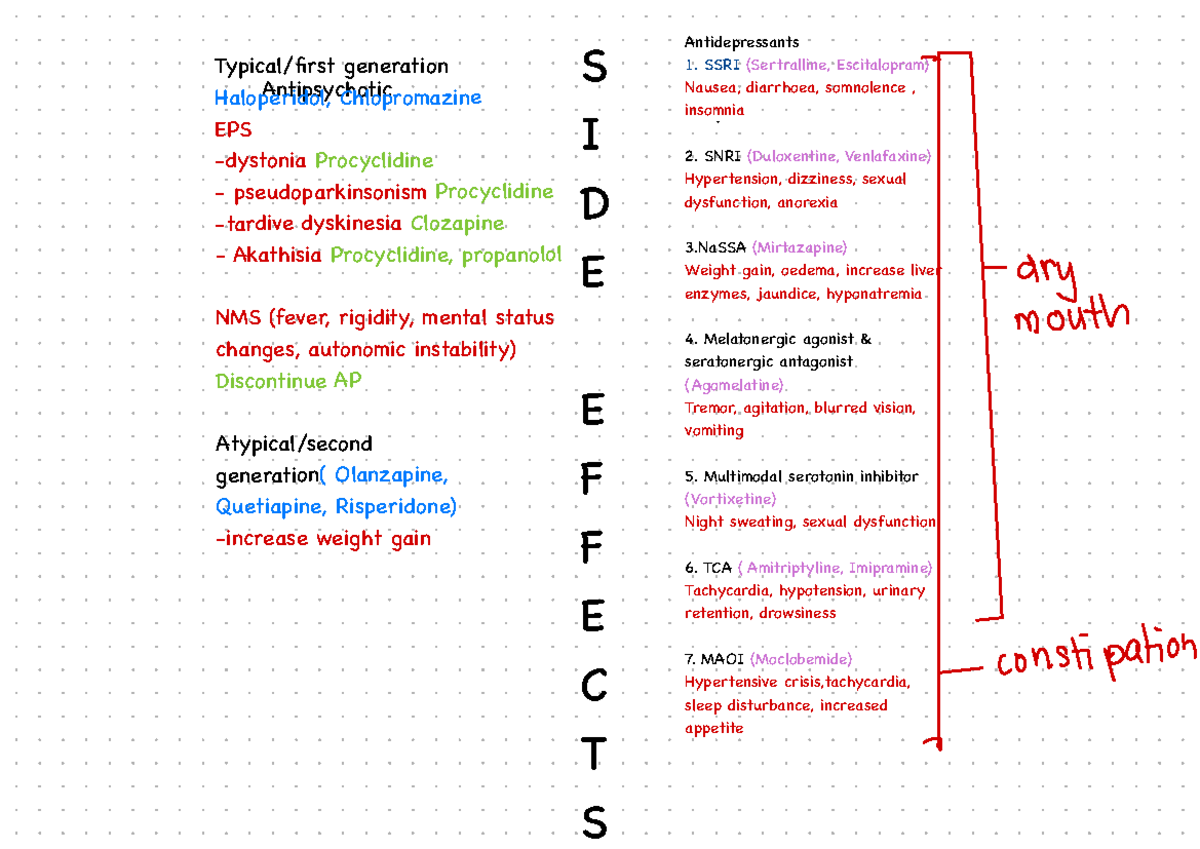 Typical/first generation
Antipsychotic
Haloperidol, Chlopromazine
EPS
-dystonia Procyclidine
- pseudoparkinsonism Procyclidine
-tardive dyskinesia Clozapine
- Akathisia Procyclidine, propanolol
NMS (fever, rigidity, mental status
changes, autonomic instability)
Discontinue AP
Atypical/second
generation( Olanzapine,
Quetiapine, Risperidone)
-increase weight gain
S
I
D
E
E
F
F
E
C
T
S
Antidepressants
1. SSRI (Sertralline, Escitalopram)
Nausea, diarrhoea, somnolence ,
insomnia
2. SNRI (Duloxentine, Venlafaxine)
Hypertension, dizziness, sexual
dysfunction, anorexia
3.NaSSA (Mirtazapine)
Weight gain, oedema, increase liver
enzymes, jaundice, hyponatremia
4. Melatonergic agonist &
seratonergic antagonist
(Agomelatine)
Tremor, agitation, blurred vision,
vomiting
5. Multimodal serotonin inhibitor
(Vortixetine)
Night sweating, sexual dysfunction
6. TCA ( Amitriptyline, Imipramine)
Tachycardia, hypotension, urinary
retention, drowsiness
7. MAOI (Moclobemide)
Hypertensive crisis,tachycardia,
sleep disturbance, increased
appetite
dry
mouth
constipation